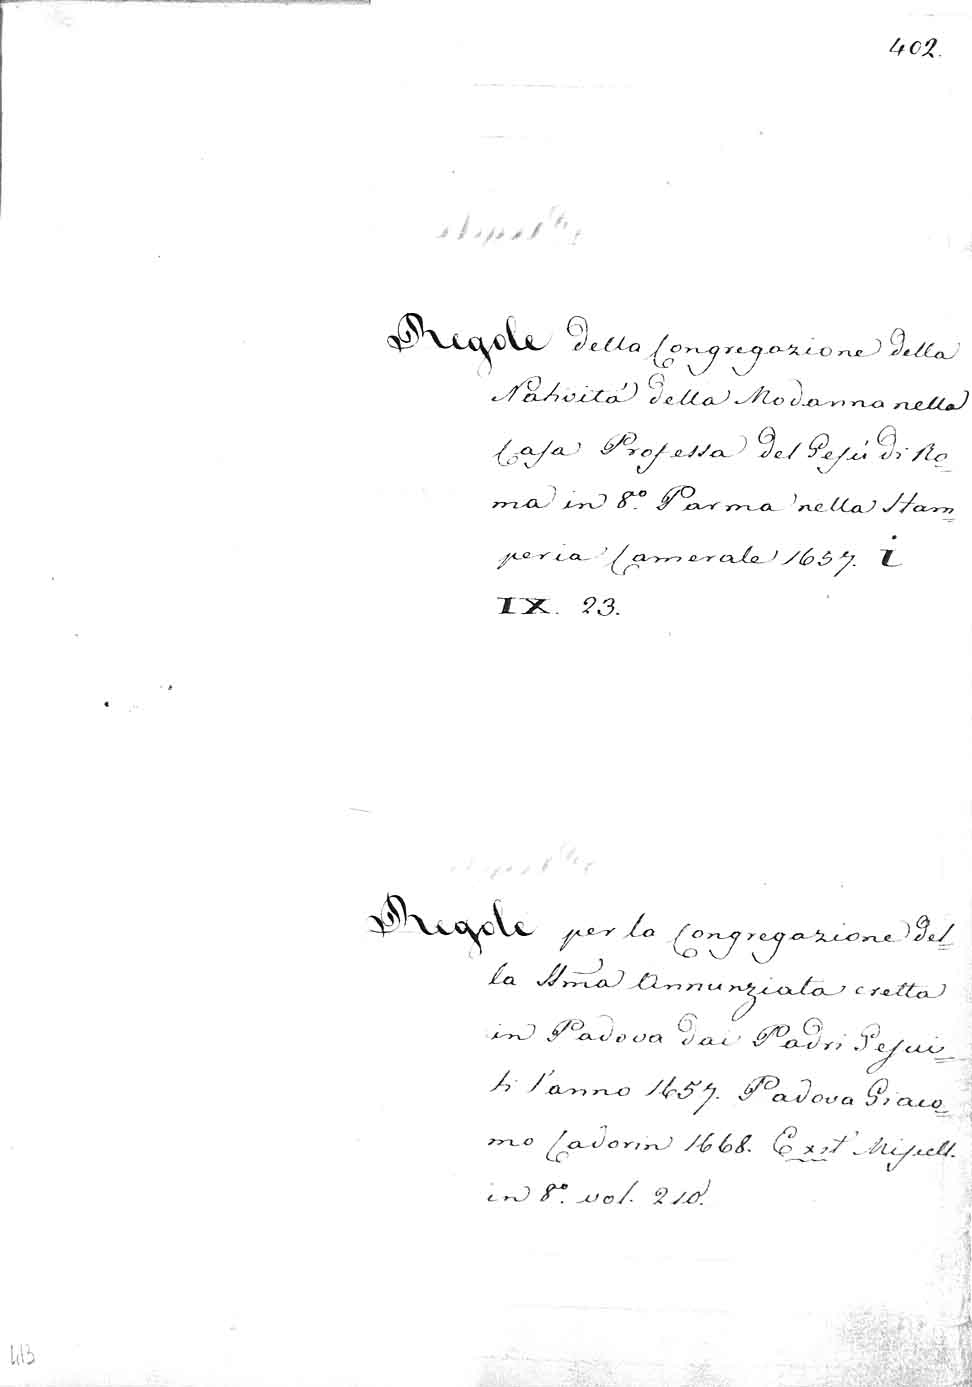 402.
Regole della Congregazione della
Natività della Modanna nella
Casa Professa del Gesù di Ro=
ma in 8.º Parma nella Stam=
peria Camerale 1657. i
IX. 23.
Regole per la Congregazione del=
la SSma Annunziata eretta
in Padova dai Padri Gesui=
ti l'anno 1657. Padova Giaco=
mo Cadorin 1668. Exst' Miscell.
in 8.º vol. 210.
413